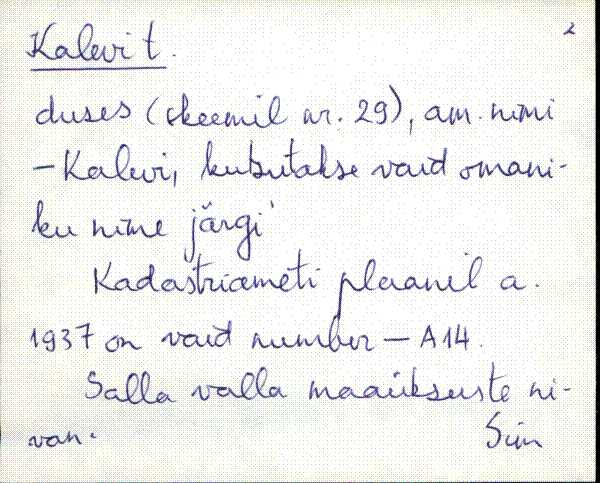 Kalevi t. 2
duses (skeemil nr. 29), am. nimi
– Kalevi, kutsutakse vaid omani-
ku nime järgi
Kadastriameti plaanil a.
1937 on vaid number – A14.
Salla valla maaüksuste ni-